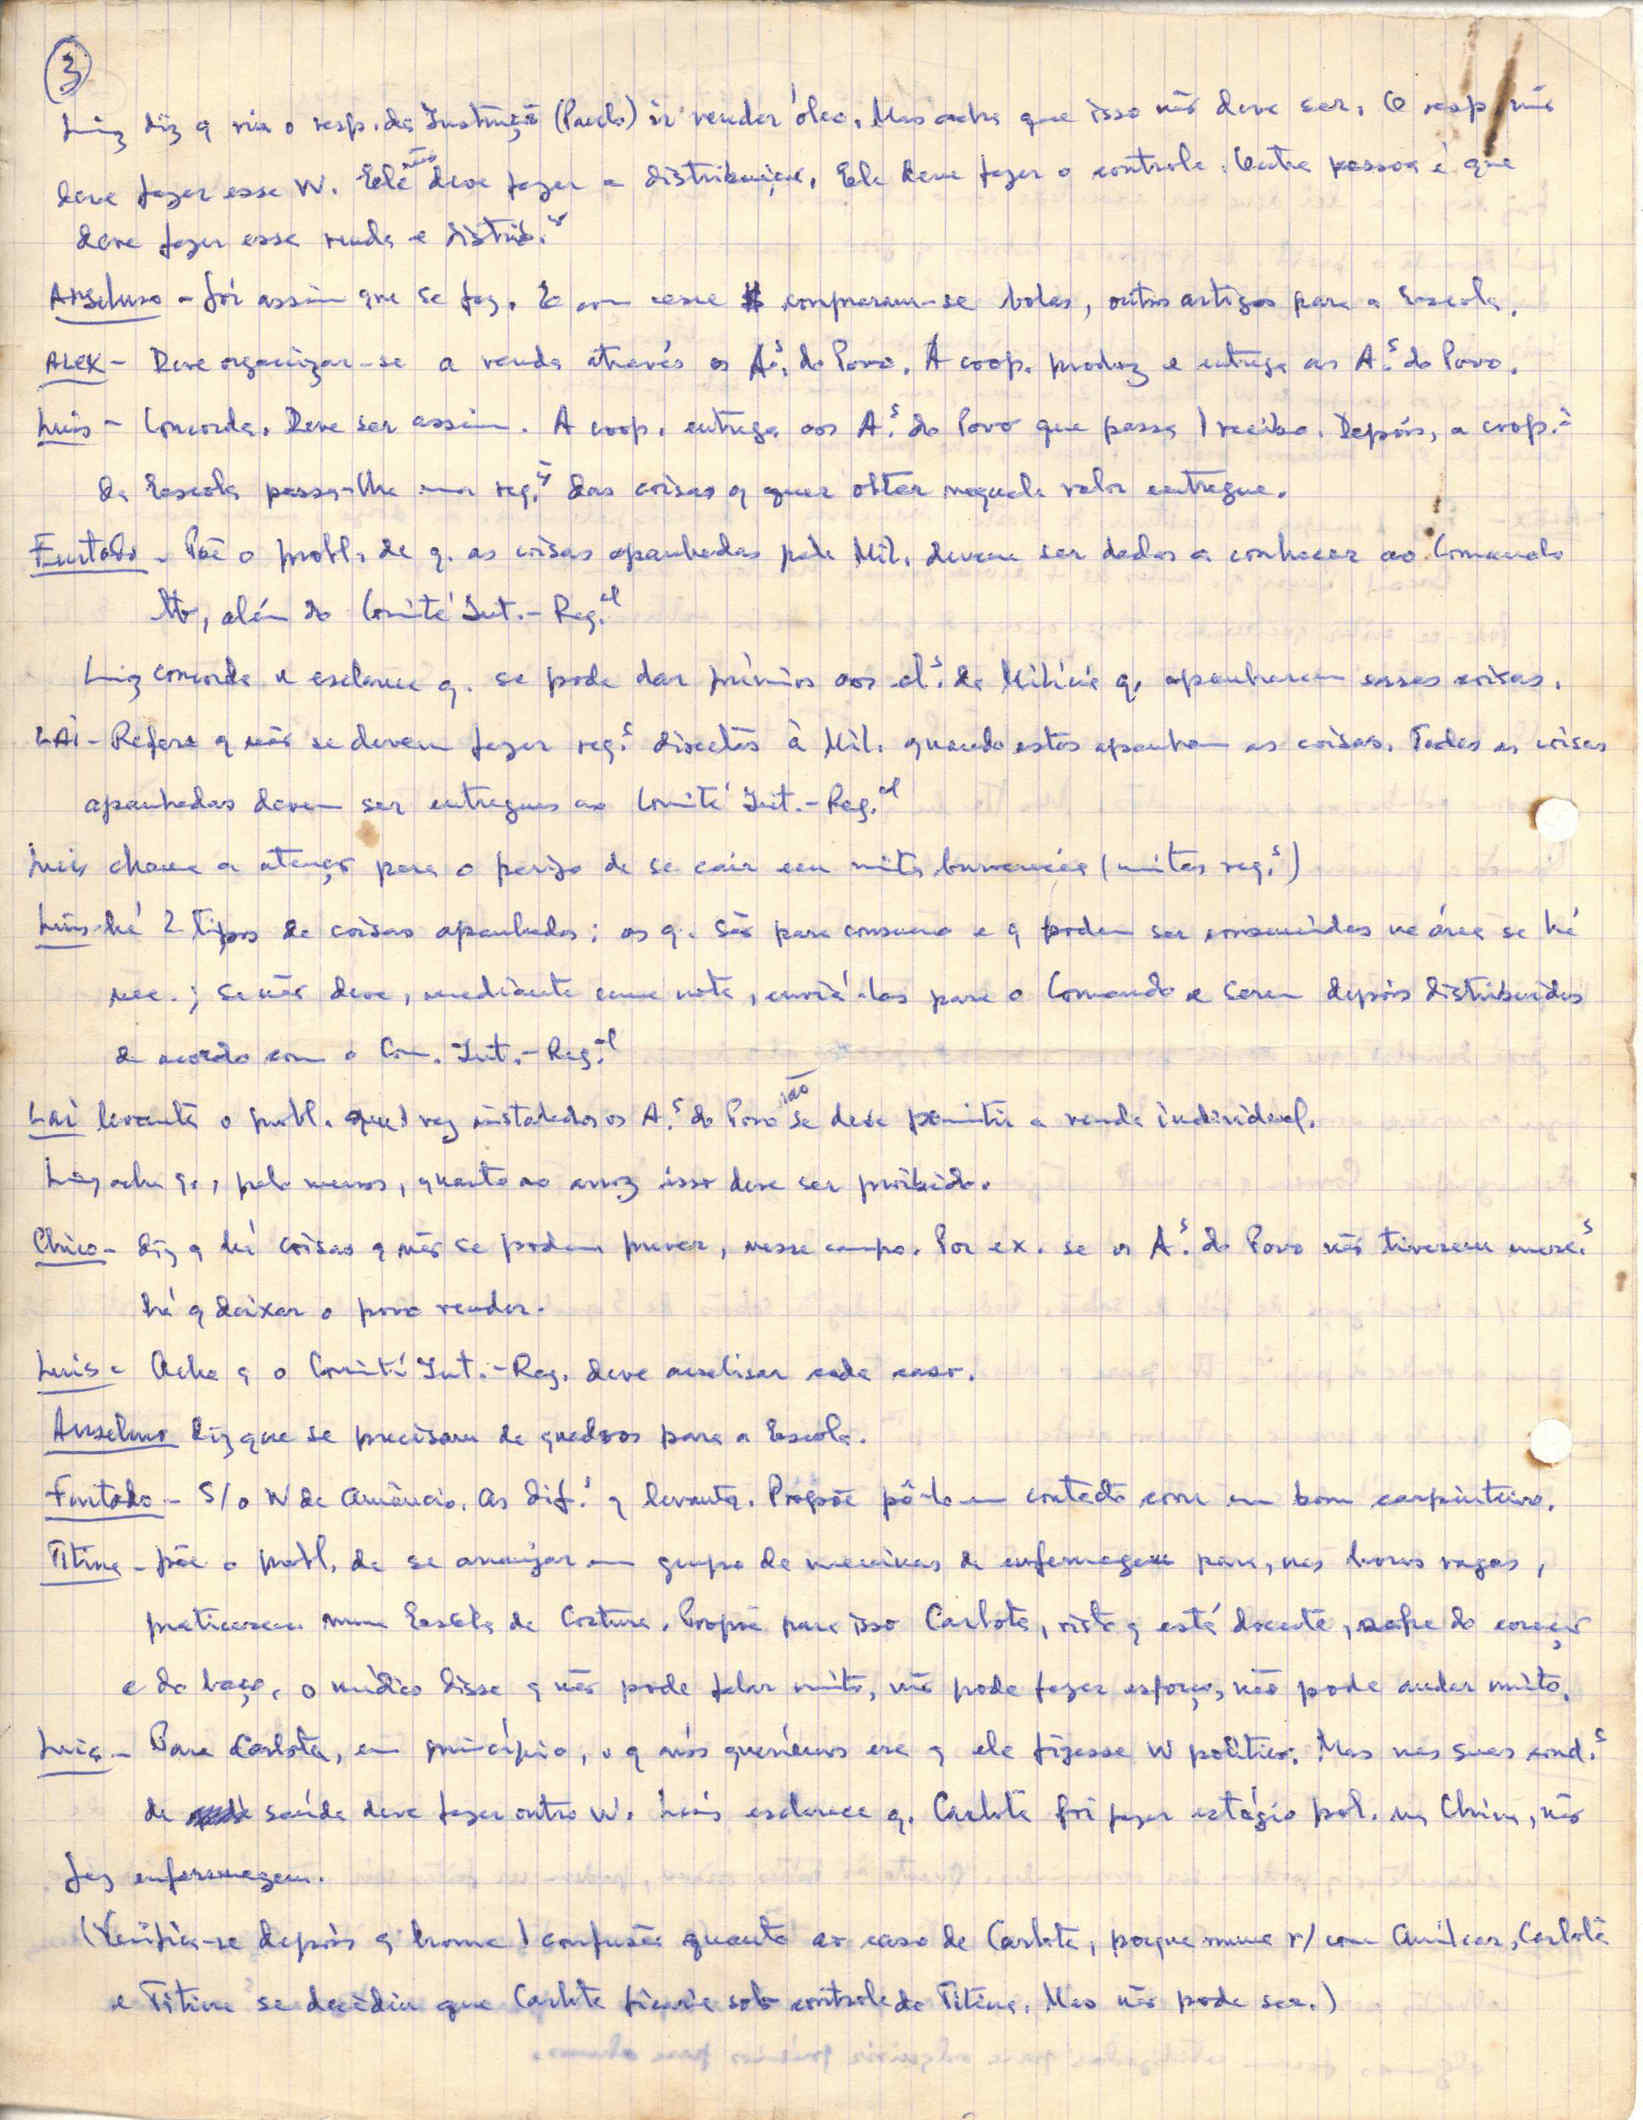 3
Luiz diz q viu o resp. da Instrução (Paulo) ir vender óleo. Mas acha que isso não deve ser. O resp não
deve fazer esse W. Ele não deve fazer a distribuição. Ele deve fazer o controle. Outra pessoa é que
deve fazer essa venda e distrib.ão
Anselmo - foi assim que se fez. E com esse $ compraram-se bolas, outros artigos para a Escola.
ALEX - Deve organizar-se a venda através os A.s do Povo. A coop. produz e entrega aos A.s do Povo.
Luís - Concorda. Deve ser assim. A coop. entrega aos A.s do Povo que passa 1 recibo. Depois, a coop.a
da Escola passa-lhe uma req.ão das coisas q quer obter naquele valor entregue.
Furtado - Põe o probl. de q. as coisas apanhadas pela Mil. devem ser dadas a conhecer ao Comando
, além do Comité Int.-Reg.al
Luiz concorda e esclarece q. se pode dar prémios aos el.s da Milícia q. apanharem essas coisas.
LAI - Refere q não se devem fazer req.s directas à Mil. quando estas apanham as coisas. Todas as coisas
apanhadas devem ser entregues ao Comité Int.-Reg.al
Luís chama a atenção para o perigo de se cair em muita burocracia (muitas req.s)
Luís há 2 tipos de coisas apanhadas; as q. são para consumo e q podem ser consumidas na área se há
nec.; se não deve, mediante uma nota, enviá-las para o Comando e serem depois distribuidas
de acordo com o Com. Int.-Reg.al
Lai levanta o probl. que 1 vez instalados os A.s do Povo não se deve permitir a venda individual.
Luiz acha q., pelo menos, quanto ao arroz isso deve ser proibido.
Chico - diz q há coisas q não se podem prever, nesse campo. Por ex. se os A.s do Povo não tiverem merc.s
há q deixar o povo vender.
Luís - Acha q o Comité Int.-Reg. deve analisar cada caso.
Anselmo diz que se precisam de quadros para a Escola.
Furtado - S/ o W de Amâncio. As dif.s q levanta. Propõe pô-lo em contacto com um bom carpinteiro.
Titina - põe o probl. de se arranjar um grupo de meninas de enfermagem para, nas horas vagas,
praticarem numa Escola de Costura. Propõe para isso Carlota, visto q está doente, sofre do coração
e do baço, o médico disse q não pode falar muito, não pode fazer esforço, não pode andar muito.
Luís - Para Carlota, em princípio, o q nós queríamos era q ela fizesse W político. Mas nas suas cond.s
de saúde deve fazer outro W. Luís esclarece q. Carlota foi fazer estágio pol. na China, não
fez enfermagem.
(Verifica-se depois q houve 1 confusão quanto ao caso de Carlota, porque numa r/ com Amílcar, Carlota
e Titina se decidiu que Carlota ficaria sob controle de Titina. Mas não pode ser.)